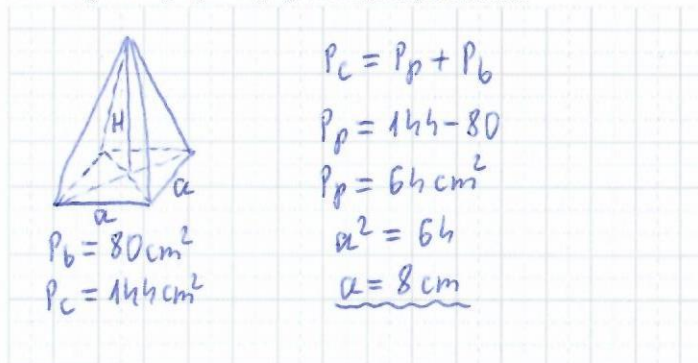 H
a
a
P_b = 80 cm²
P_c = 144 cm²
P_c = P_p + P_b
P_p = 144 - 80
P_p = 64 cm²
a² = 64
a = 8 cm